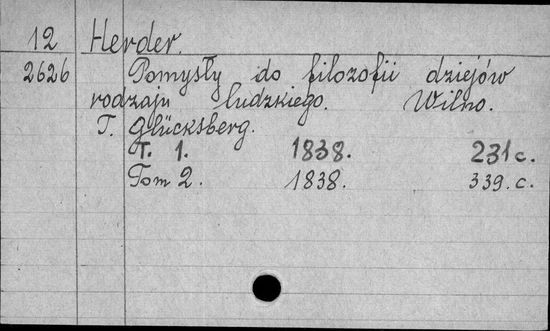 12 Herder.
2626 Pomysły do filozofii dziejów
rodzaju ludzkiego. Wilno.
T. Glücksberg.
T. 1. 1838. 231 c.
Tom 2. 1838. 339. c.